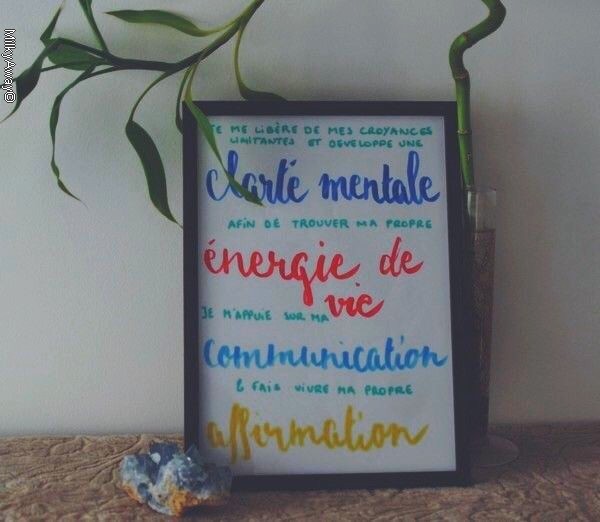 JE ME LIBÈRE DE MES CROYANCES
LIMITANTES ET DEVELOPPE UNE
clarté mentale
AFIN DE TROUVER MA PROPRE
énergie de
vie
JE M'APPUIE SUR MA
communication
& FAIS VIVRE MA PROPRE
affirmation
MilkyAway©